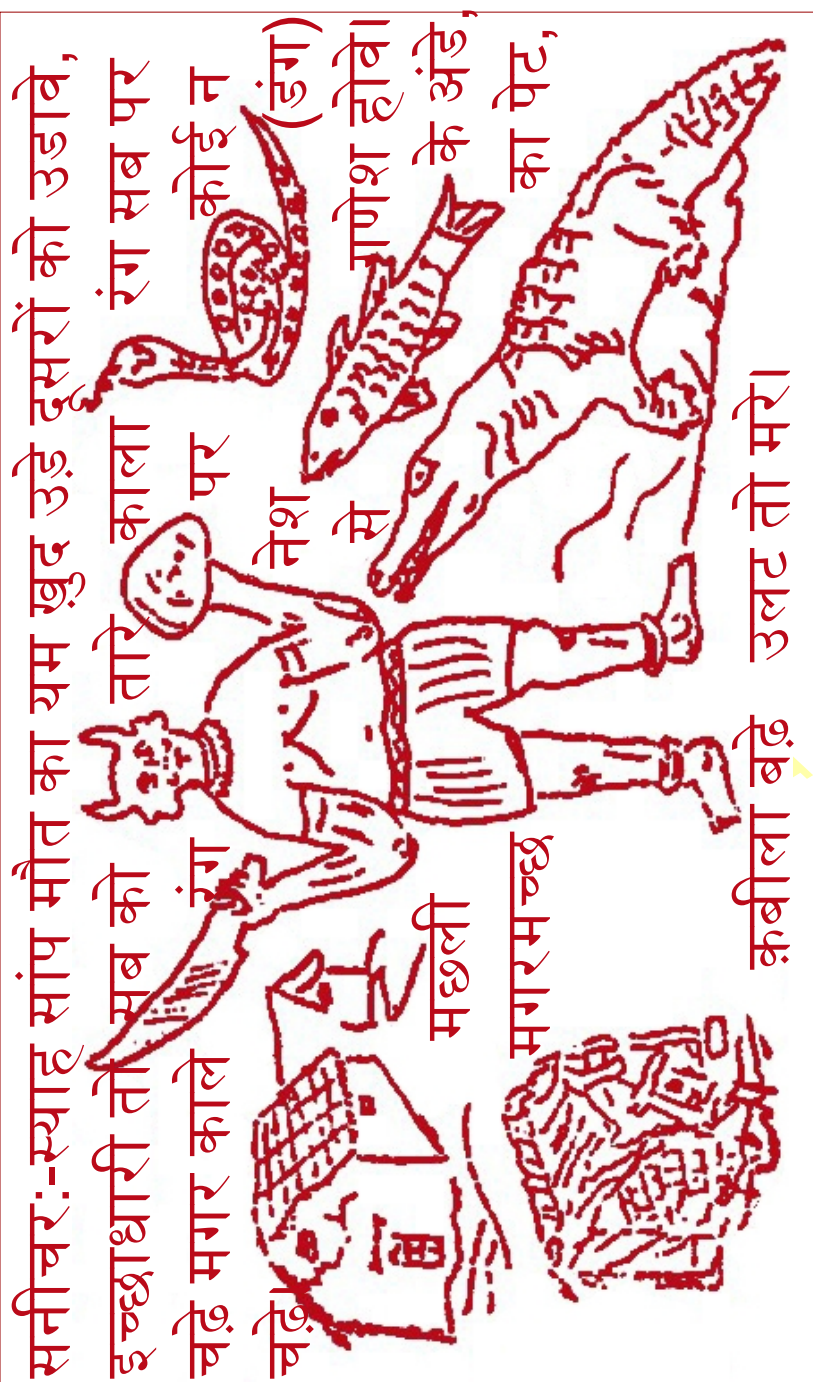 सनीचर:-स्याह सांप मौत का यम खुद उड़े दूसरों को उडावे,
इच्छाधारी तो सब को तारे काला रंग सब पर
चढ़े मगर काले रंग पर कोई न
चढ़े। नेश (डंग)
से गणेश होवे।
मछली के अंडे,
मगरमच्छ का पेट,
क़बीला बढ़े उलट तो मरे।